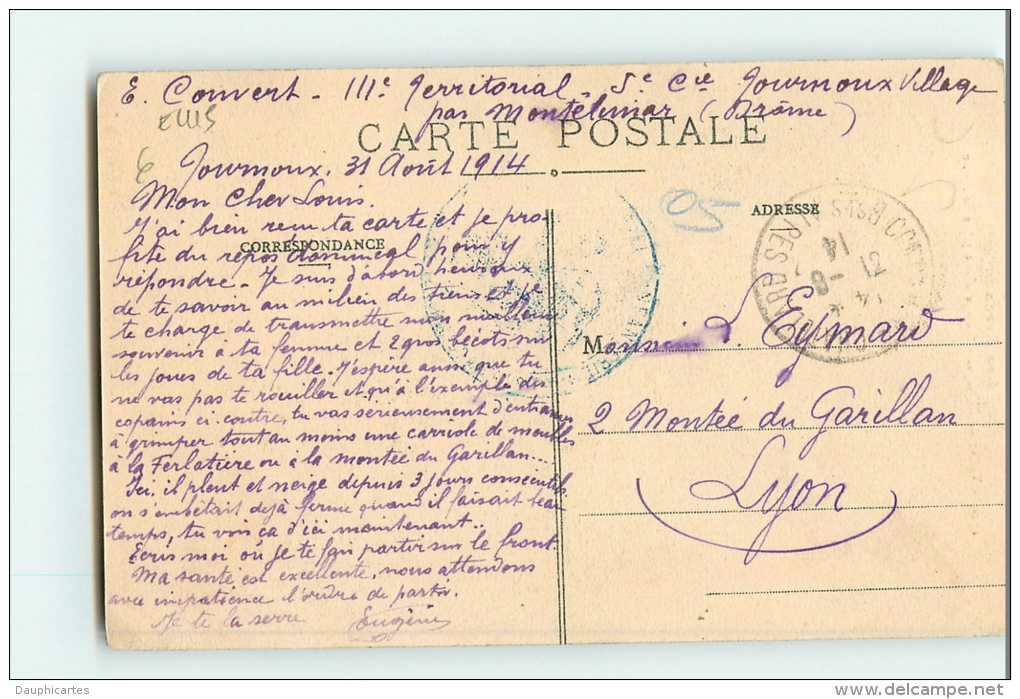 E. Convert - 111e Territorial - 5e Cie Tournoux Village
par Montélimar (Drôme)
CARTE POSTALE
Tournoux, 31 Août 1914
Mon cher Louis.
J'ai bien reçu ta carte et je pro-
fite du repos dominical pour y
CORRESPONDANCE
répondre - Je suis d'abord heureux
de te savoir au milieu des tiens et je
te charge de transmettre mon meilleur
souvenir à ta femme et 2 gros bécots sur
les joues de ta fille. J'espère aussi que tu
ne vas pas te rouiller et qu'à l'exemple des
copains ci-contre, tu vas sérieusement t'entrainer
à grimper tout au moins une carriole de meubles
à la Ferlatière ou à la montée du Garillan...
Ici, il pleut et neige depuis 3 jours consécutifs
on s'embêtait déjà ferme quand il faisait beau
temps, tu vois ça d'ici maintenant..
Ecris moi ou je te fais partir sur le front.
Ma santé est excellente, nous attendons
avec impatience l'ordre de partir.
Je te la serre Eugène
50
ADRESSE
Monsieur Eymard
2 Montée du Garillan
Lyon
Dauphicartes
www.delcampe.net